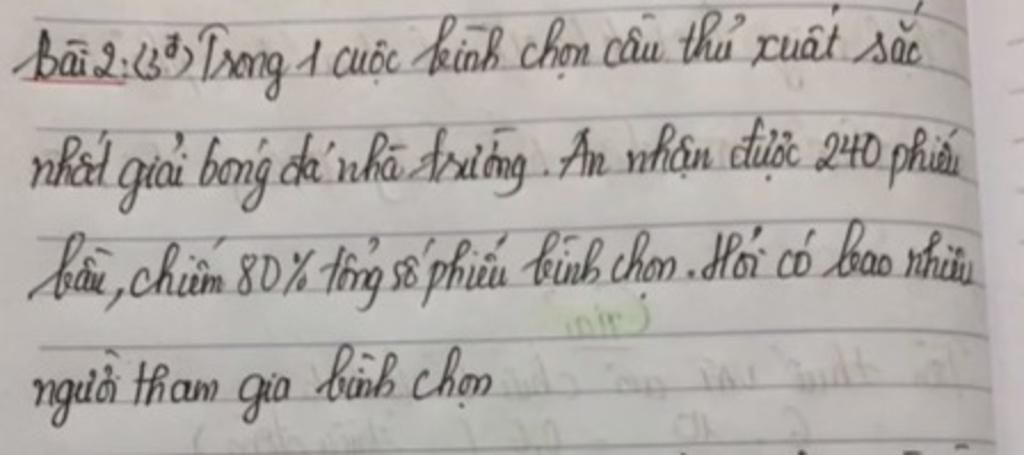 Bài 2: (3đ) Trong 1 cuộc bình chọn cầu thủ xuất sắc
nhất giải bóng đá nhà trường. An nhận được 240 phiếu
bầu, chiếm 80% tổng số phiếu bình chọn. Hỏi có bao nhiêu
người tham gia bình chọn